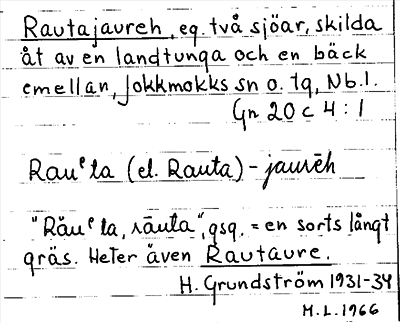 Rautajaureh, eg. två sjöar, skilda
åt av en landtunga och en bäck
emellan, Jokkmokks sn o. tg, Nb.l.
Gn 20 c 4 : 1
Rauᵉta (el. Rauta) - jaurēh
"Răuᵉta, rāuta", gsg. = en sorts långt
gräs. Heter även Rautaure.
H. Grundström 1931-34
M.L. 1966